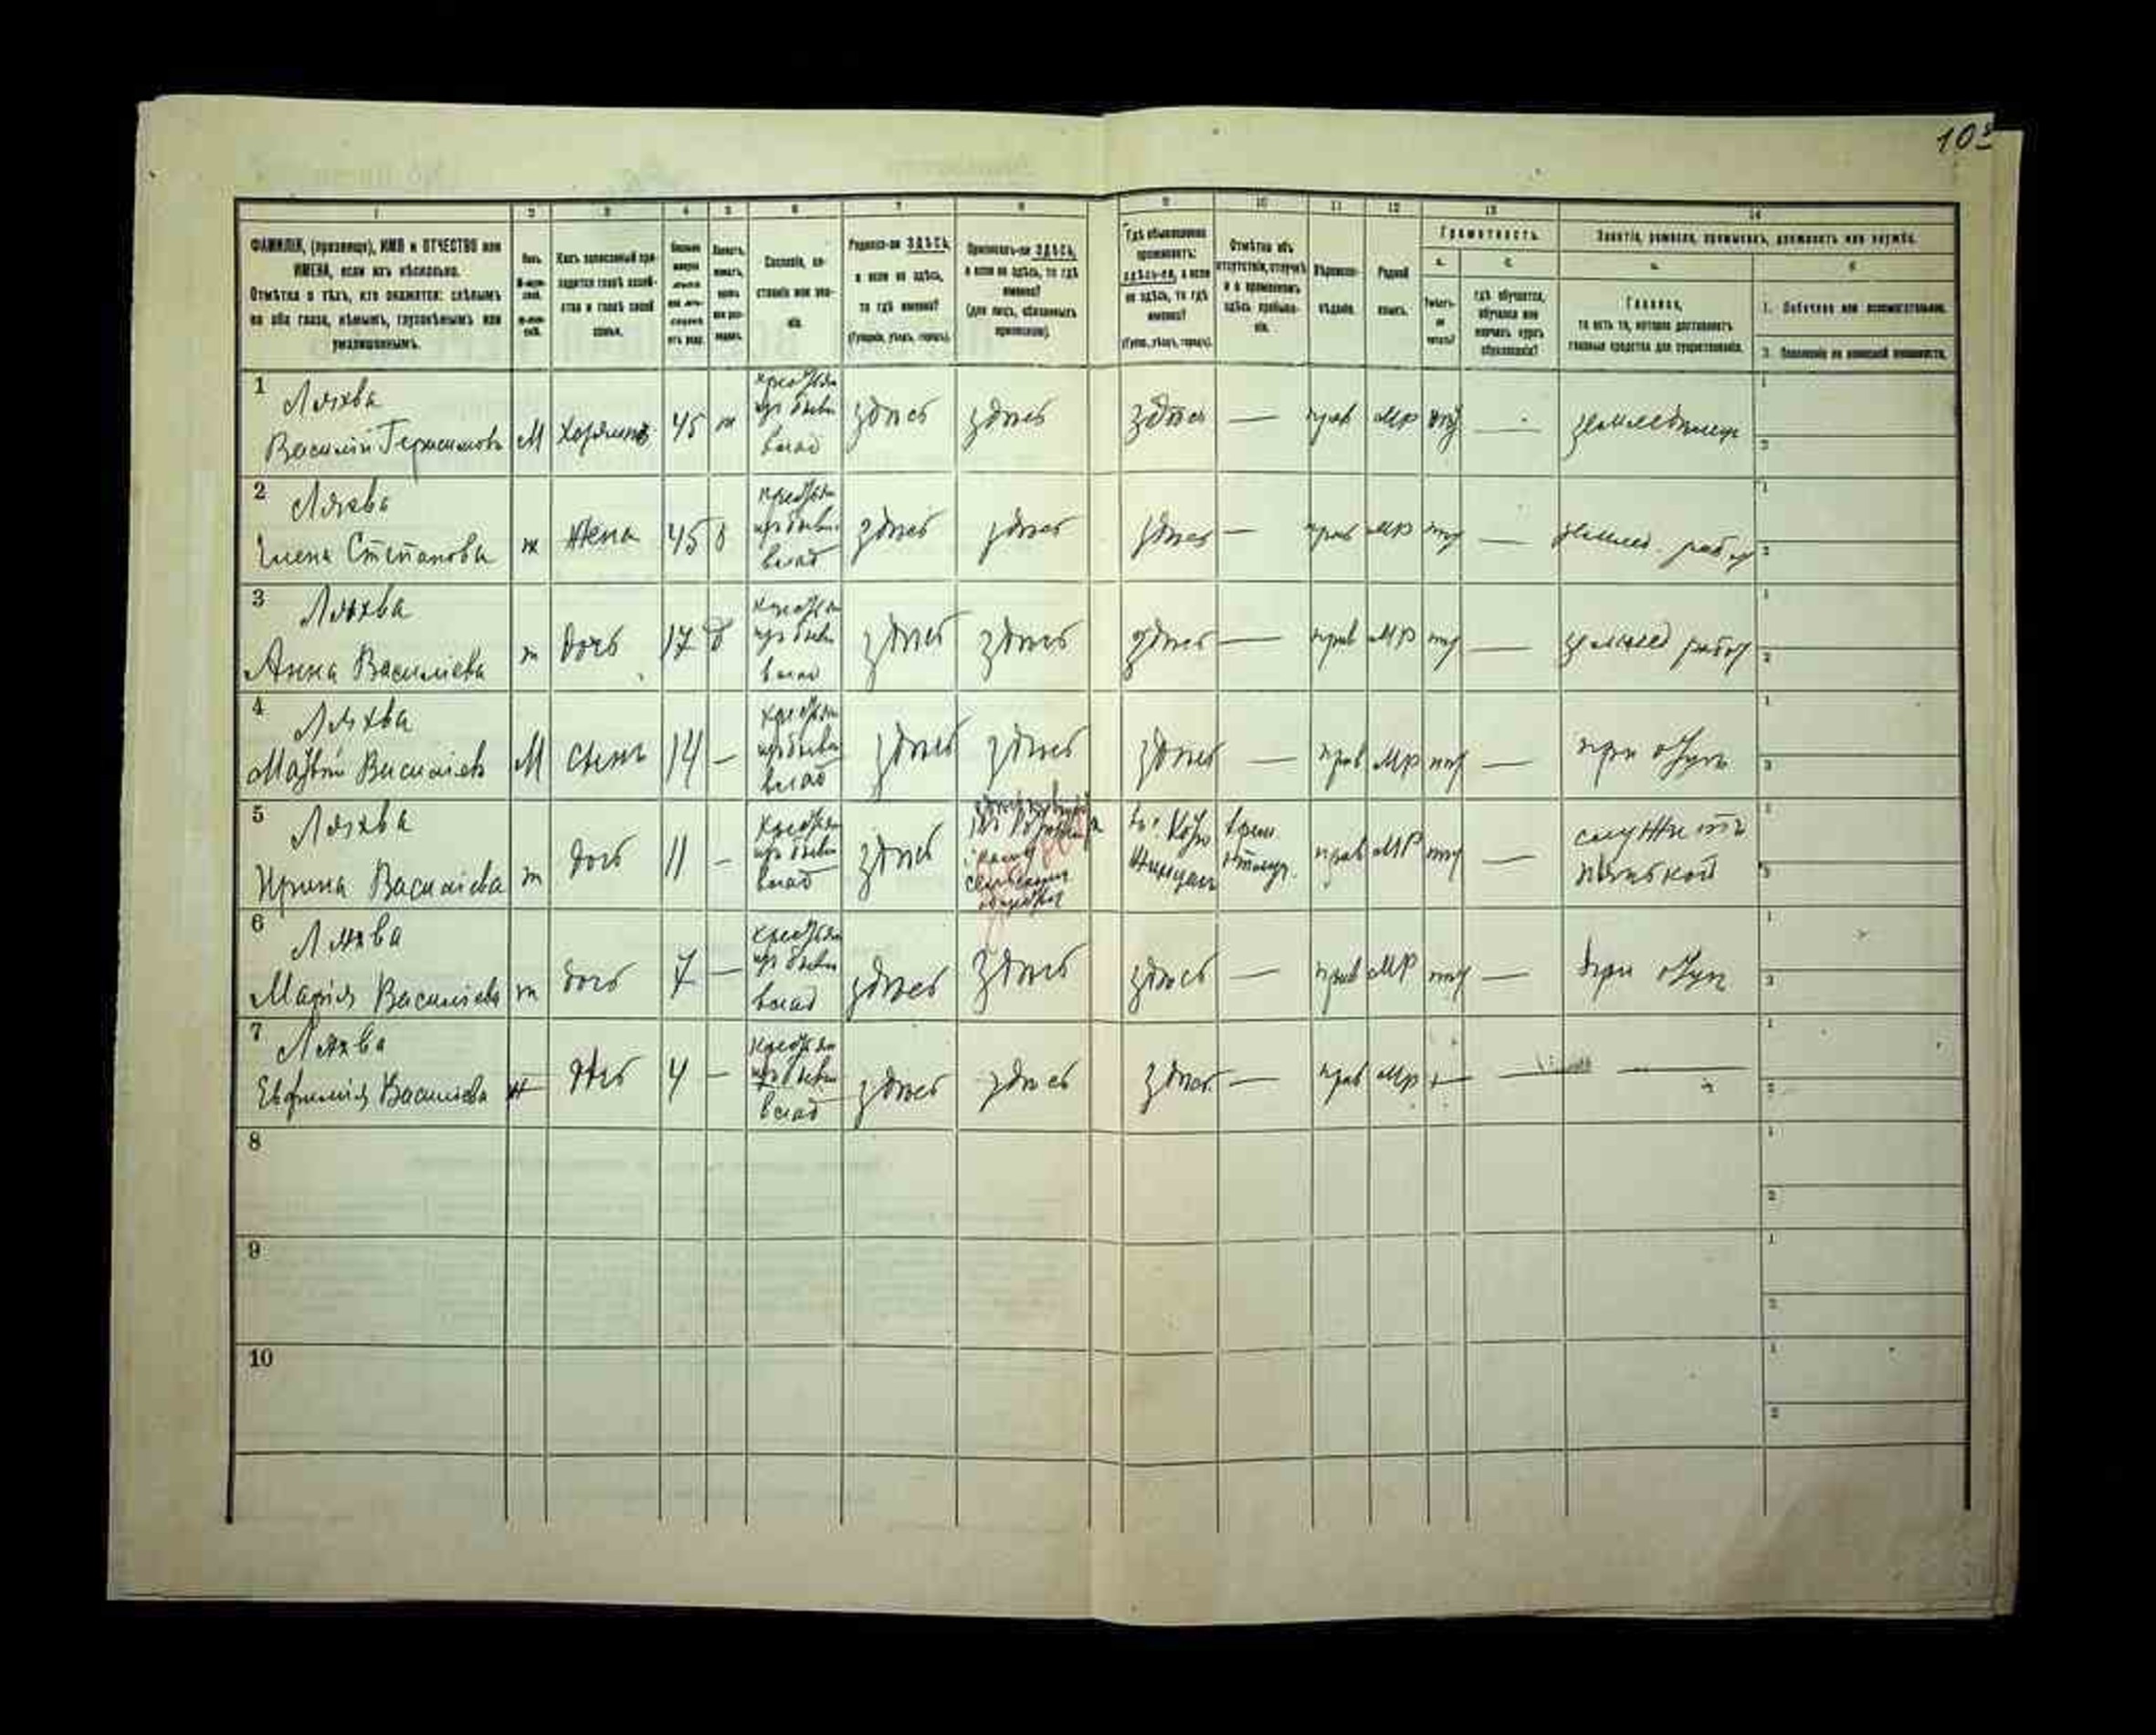 103
1 2 3 4 5 6 7 8 9 10 11 12 13 14
ФАМИЛІЯ, (прозвище), ИМЯ и ОТЧЕСТВО или
ИМЕНА, если ихъ нѣсколько.
Отмѣтка о тѣхъ, кто окажется: слѣпымъ
на оба глаза, нѣмымъ, глухонѣмымъ или
умалишеннымъ.
Какъ записанный при-
ходится главѣ хозяй-
ства и главѣ своей
семьи.
Сословіе, со-
стояніе или зва-
ніе.
Родился-ли ЗДѢСЬ,
а если не здѣсь,
то гдѣ именно?
(Губернія, уѣздъ, городъ).
Приписанъ-ли ЗДѢСЬ,
а если не здѣсь, то гдѣ
именно?
(для лицъ, обязанныхъ
припискою).
Гдѣ обыкновенно
проживаетъ:
здѣсь-ли, а если
не здѣсь, то гдѣ
именно?
(Губер., уѣздъ, городъ).
Отмѣтка объ
отсутствіи, отлучкѣ
и о временномъ
здѣсь пребыва-
ніи.
Вѣроиспо-
вѣданіе.
Родной
языкъ.
Грамотность.
а. б.
Умѣетъ-
ли
читать?
гдѣ обучается,
обучался или
кончилъ курсъ
образованія?
Занятіе, ремесло, промыселъ, должность или служба.
а. б.
Главное,
то есть то, которое доставляетъ
главныя средства для существованія.
1. Побочное или вспомогательное.
2. Положеніе по воинской повинности.
1 Ляхва
Василій Герасимовъ М хозяинъ 45 ж крестьян из бывш влад здѣсь здѣсь здѣсь — прав МР нѣт — земледѣлецъ
2 Ляхва
Елена Степанова ж жена 45 з крестьян из бывш влад здѣсь здѣсь здѣсь — прав МР нѣт — землед. работ
3 Ляхва
Анна Василіева ж дочь 17 д крестьян из бывш влад здѣсь здѣсь здѣсь — прав МР нѣт — землед работ
4 Ляхва
Матвій Василіевъ М сынъ 14 — крестьян из бывш влад здѣсь здѣсь здѣсь — прав МР нѣт — при отцѣ
5 Ляхва
Ирина Василіева ж дочь 11 — крестьян из бывш влад здѣсь прав МР нѣт — служитъ
нянькой
6 Ляхва
Марія Василіева ж дочь 7 — крестьян из бывш влад здѣсь здѣсь здѣсь — прав МР нѣт — при отцѣ
7 Ляхва
Евфимія Василіева ж дочь 4 — крестьян из бывш влад здѣсь здѣсь здѣсь — прав МР —
8
9
10